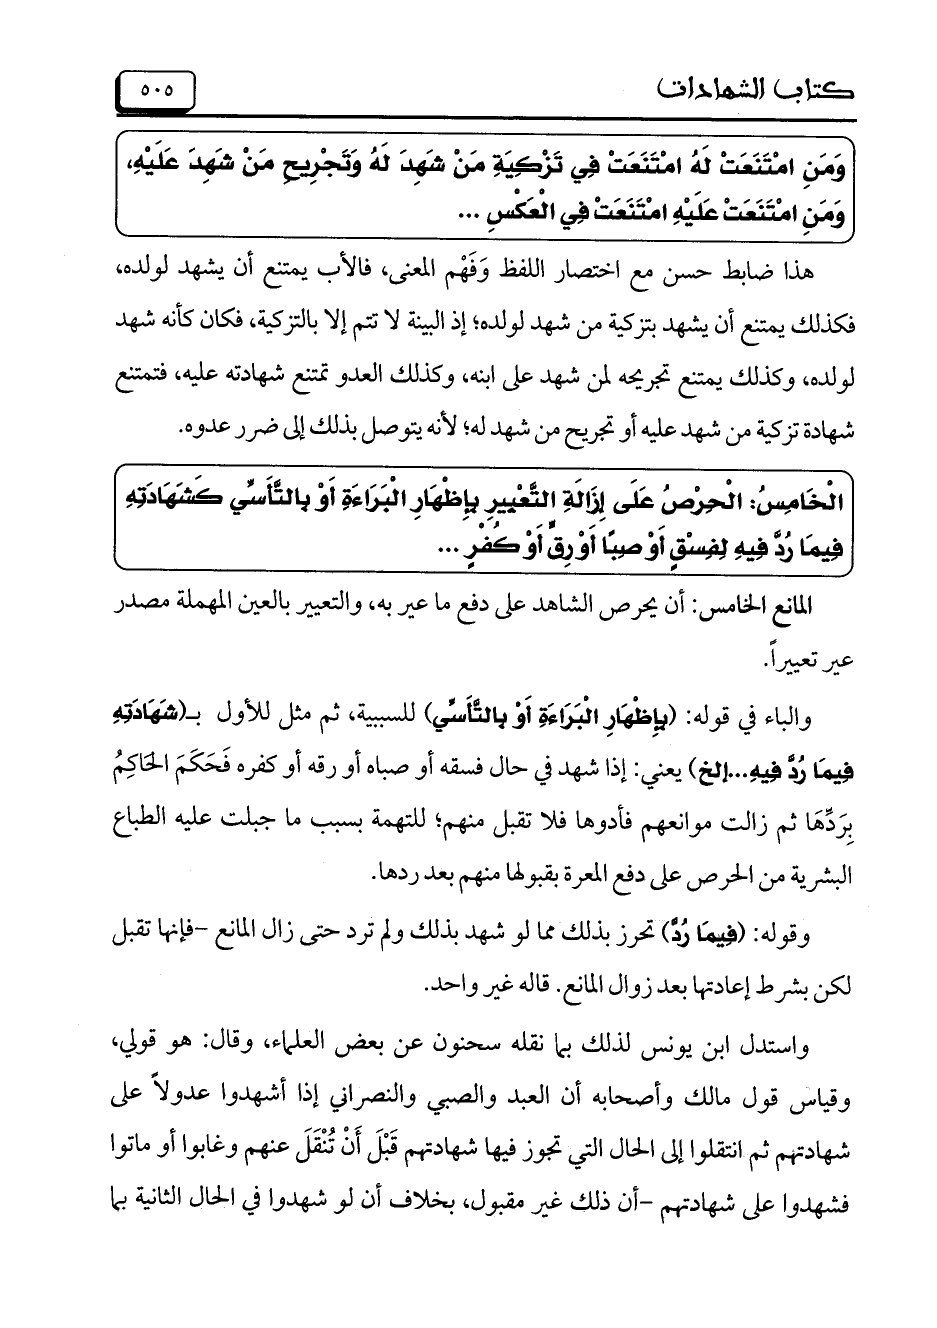 كتاب الشهادات
٥٠٥
وَمَنِ امْتَنَعَتْ لَهُ امْتَنَعَتْ فِي تَزْكِيَةِ مَنْ شَهِدَ لَهُ وَتَجْرِيحِ مَنْ شَهِدَ عَلَيْهِ،
وَمَنِ امْتَنَعَتْ عَلَيْهِ امْتَنَعَتْ فِي الْعَكْسِ ...
هذا ضابط حسن مع اختصار اللفظ وَفَهْم المعنى، فالأب يمتنع أن يشهد لولده،
فكذلك يمتنع أن يشهد بتزكية من شهد لولده؛ إذ البينة لا تتم إلا بالتزكية، فكان كأنه شهد
لولده، وكذلك يمتنع تجريحه لمن شهد على ابنه، وكذلك العدو تمتنع شهادته عليه، فتمتنع
شهادة تزكية من شهد عليه أو تجريح من شهد له؛ لأنه يتوصل بذلك إلى ضرر عدوه.
الْخَامِسُ: الْحِرْصُ عَلَى إِزَالَةِ التَّعْيِيرِ بِإِظْهَارِ الْبَرَاءَةِ أَوْ بِالتَّأَسِّي كَشَهَادَتِهِ
فِيمَا رُدَّ فِيهِ لِفِسْقٍ أَوْ صِبًا أَوْ رِقٍّ أَوْ كُفْرٍ ...
المانع الخامس: أن يحرص الشاهد على دفع ما عير به، والتعيير بالعين المهملة مصدر
عير تعييراً.
والباء في قوله: (بِإِظْهَارِ الْبَرَاءَةِ أَوْ بِالتَّأَسِّي) للسببية، ثم مثل للأول بـ(شَهَادَتِهِ
فِيمَا رُدَّ فِيهِ...إلخ) يعني: إذا شهد في حال فسقه أو صباه أو رقه أو كفره فَحَكَمَ الحَاكِمُ
بِرَدِّهَا ثم زالت موانعهم فأدوها فلا تقبل منهم؛ للتهمة بسبب ما جبلت عليه الطباع
البشرية من الحرص على دفع المعرة بقبولها منهم بعد ردها.
وقوله: (فِيمَا رُدَّ) تحرز بذلك مما لو شهد بذلك ولم ترد حتى زال المانع -فإنها تقبل
لكن بشرط إعادتها بعد زوال المانع. قاله غير واحد.
واستدل ابن يونس لذلك بما نقله سحنون عن بعض العلماء، وقال: هو قولي،
وقياس قول مالك وأصحابه أن العبد والصبي والنصراني إذا أشهدوا عدولاً على
شهادتهم ثم انتقلوا إلى الحال التي تجوز فيها شهادتهم قَبْلَ أَنْ تُنْقَلَ عنهم وغابوا أو ماتوا
فشهدوا على شهادتهم -أن ذلك غير مقبول، بخلاف أن لو شهدوا في الحال الثانية بما